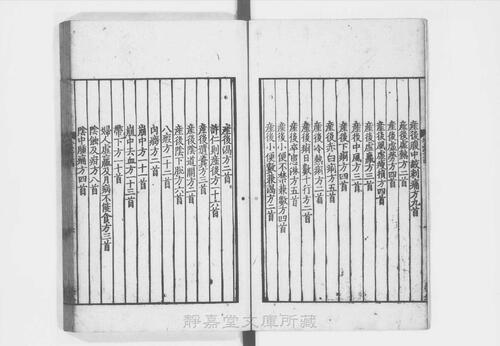 産後腹中㽲刺痛方九首
産後虛熱方二首
産後虛勞方四首
産後風虛癭損方四首
産後虛羸方三首
産後中風方三首
産後下痢方四首
産後赤白痢方五首
産後冷熱痢方二首
産後痢日數十行方二首
産後卒患淋方五首
産後小便不禁兼數方四首
産後小便數兼渴方二首
産後渴方二首
許仁則産後方一十六首
産後遺糞方三首
産後陰道開方二首
産後陰下脫方六首
八瘕方一十二首
内痛方二首
崩中方一十一首
崩中去血方一十三首
帶下方一十首
婦人虛羸及月病不能食方三首
陰蝕及疳方八首
陰中腫痛方四首
靜嘉堂文庫所藏